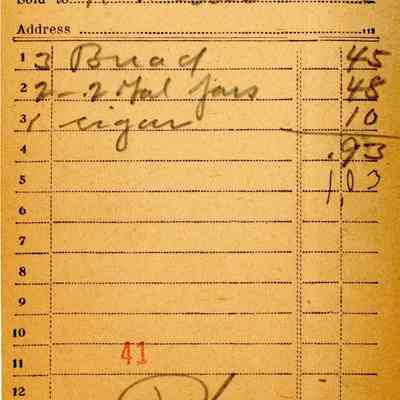 Sold to
Address
1 3 Bread 45
2 2 - .2 Gal Jars 48
3 1 cigar 10
4 .93
5 1,03
6
7
8
9
10
41
11
12